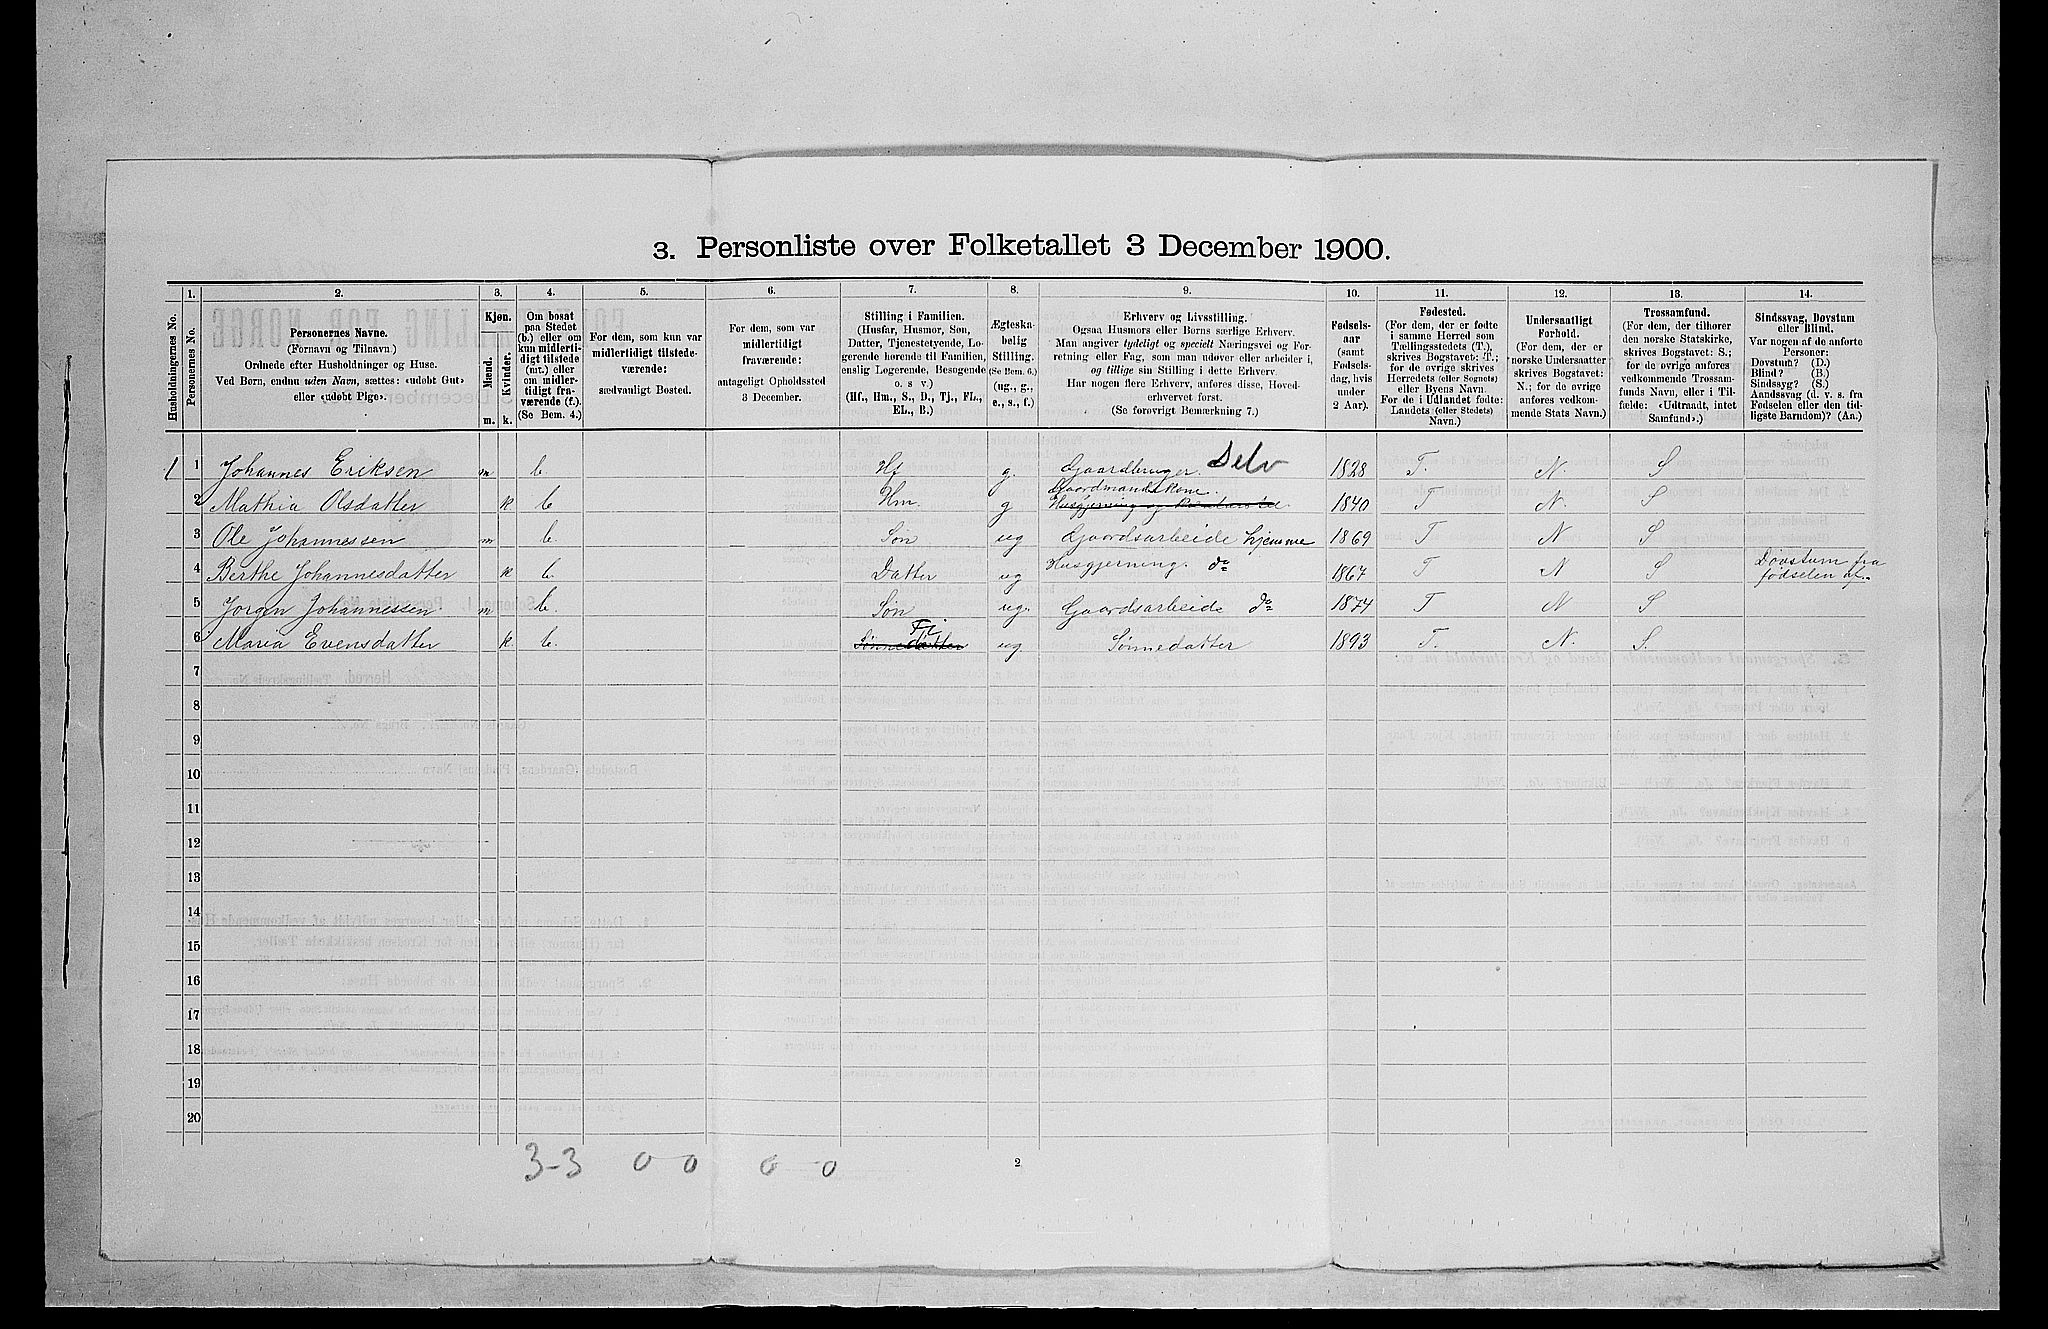 3. Personliste over Folketallet 3 December 1900.
1. 2. 3. 4. 5. 6. 7. 8. 9. 10. 11. 12. 13. 14.
Husholdningernes No.
Personernes No.
Personernes Navne.
(Fornavn og Tilnavn.)
Ordnede efter Husholdninger og Huse.
Ved Børn, endnu uden Navn, sættes: «udøbt Gut»
eller «udøbt Pige».
Kjøn.
Mænd.
Kvinder.
m. k.
Om bosat
paa Stedet
(b.) eller om
kun midlerti-
digt tilstede
(mt.) eller
om midler-
tidigt fra-
værende (f.).
(Se Bem. 4.)
For dem, som kun var
midlertidigt tilstede-
værende:
sædvanligt Bosted.
For dem, som var
midlertidigt
fraværende:
antageligt Opholdssted
3 December.
Stilling i Familien.
(Husfar, Husmor, Søn,
Datter, Tjenestetyende, Lo-
gerende hørende til Familien,
enslig Logerende, Besøgende
o. s v.)
(Hf., Hm., S., D., Tj., FL.,
EL., B.)
Ægteska-
belig
Stilling.
(Se Bem. 6.)
(ug., g.,
e., s., f.)
Erhverv og Livsstilling.
Ogsaa Husmors eller Børns særlige Erhverv.
Man angiver tydeligt og specielt Næringsvei og For-
retning eller Fag, som man udøver eller arbeider i,
og tillige sin Stilling i dette Erhverv.
Har nogen flere Erhverv, anføres disse, Hoved-
erhvervet først.
(Se forøvrigt Bemærkning 7.)
Fødsels-
aar
(samt
Fødsels-
dag, hvis
under
2 Aar).
Fødested.
(For dem, der er fødte
i samme Herred som
Tællingsstedets (T.),
skrives Bogstavet: T.;
for de øvrige skrives
Herredets (eller Sognets)
eller Byens Navn.
For de i Udlandet fødte:
Landets (eller Stedets)
Navn.)
Undersaatligt
Forhold.
(For dem, der er
norske Undersaatter
skrives Bogstavet:
N.; for de øvrige
anføres vedkom-
mende Stats Navn.)
Trossamfund.
(For dem, der tilhører
den norske Statskirke,
skrives Bogstavet: S.;
for de øvrige anføres
vedkommende Trossam-
funds Navn, eller i Til-
fælde: «Udtraadt, intet
Samfund».)
Sindssvag, Døvstum
eller Blind.
Var nogen af de anførte
Personer:
Døvstum? (D.)
Blind? (B.)
Sindssyg? (S.)
Aandssvag (d. v. s. fra
Fødselen eller den tid-
ligste Barndom)? (Aa.)
1 1 Johannes Eriksen m b. Hf g. Gaardbruger. Selv 1828 T. N. S
2 Mathia Olsdatter k b Hm. g Gaardmandskone. 1840 T N. S
3 Ole Johannessen m b. Søn ug Gaardsarbeide hjemme 1869 T N S
4 Berthe Johannesdatter k b. Datter ug Husgjerning. do 1867 T N S Døvstum fra
fødselen af.
5 Jørgen Johannessen m b. Søn ug. Gaardsarbeide do 1874 T N S
6 Maria Evensdatter k. b. Sønnedatter Fl ug Sønnedatter 1893 T. N. S.
7
8
9
10
11
12
13
14
15
16
17
18
19
20
3-3 0 0 0 - 0
2